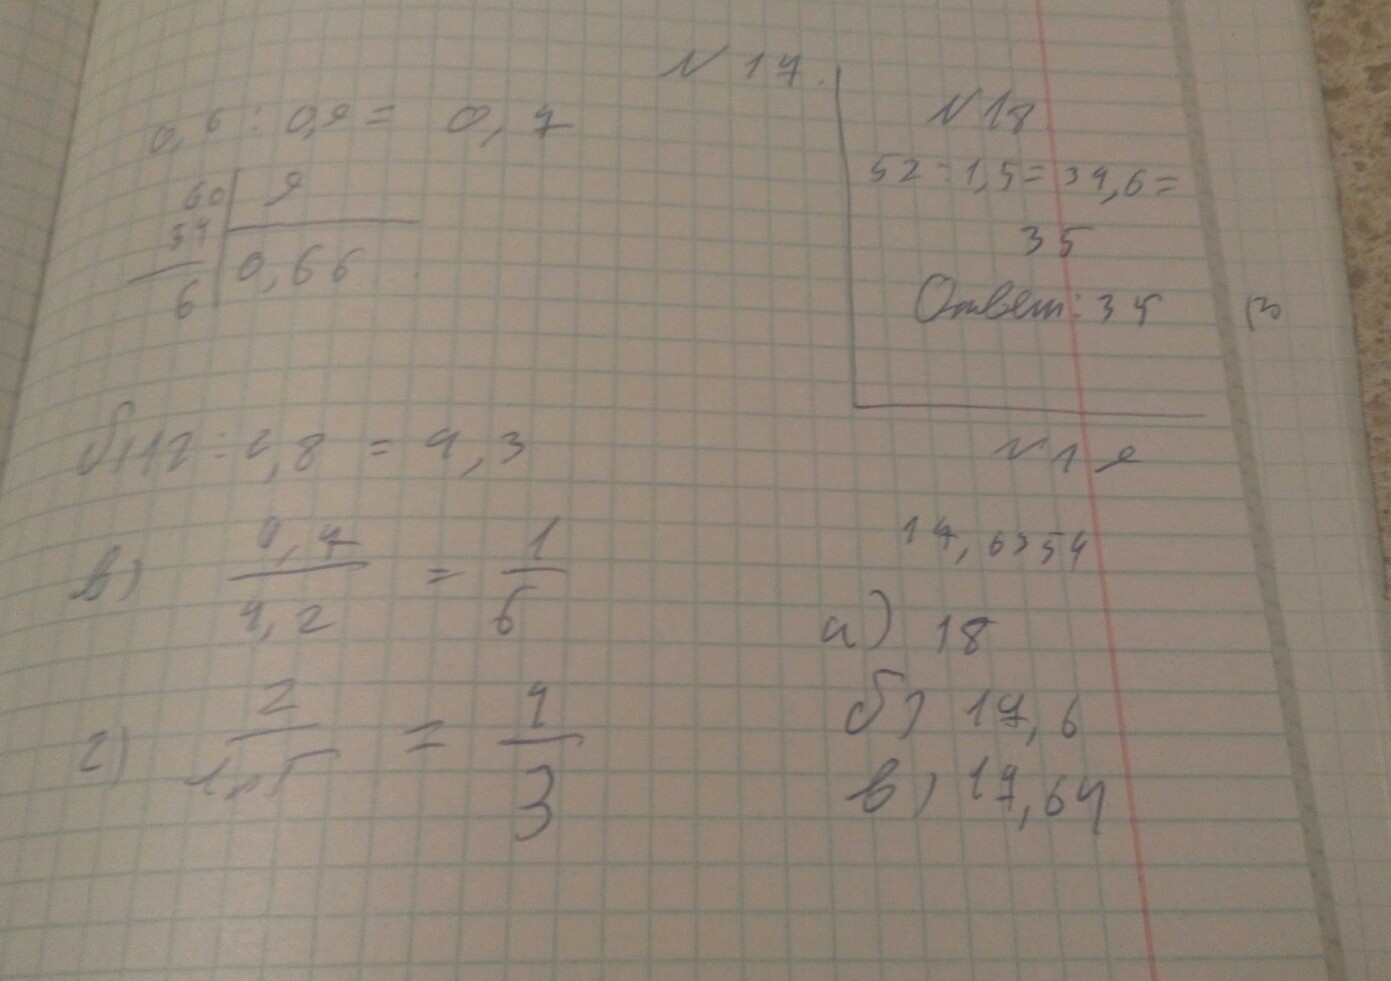 N 17.
0,6 : 0,9 = 0,7
60 9
54 0,66
6
б) 12 : 2,8 = 4,3
в) 0,7/4,2 = 1/6
г) 2/1,5 = 4/3
N18
52 : 1,5 = 34,6 =
35
Ответ: 35
N19
17,6354
а) 18
б) 17,6
в) 17,64